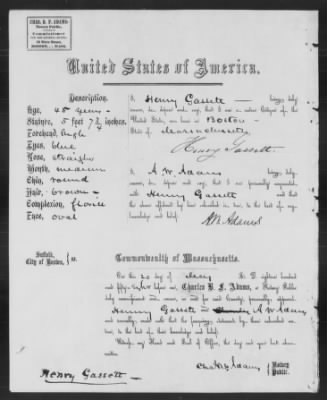 CHAS. B. F. ADAMS
Notary Public,
Commissioner
BOSTON, MASS.
United States of America.
Description.
Age, 48 years
Stature, 5 feet 7 3/4 inches.
Forehead, high
Eyes, blue
Nose, straight
Mouth, medium
Chin, round
Hair, brown
Complexion, florid
Face, oval
I, Henry Gassett being duly
sworn, do depose and say, that I am a Citizen of the
United States, was born at Boston
State of Massachusetts
Henry Gassett
I, A. W. Adams being duly
sworn, do depose and say, that I am personally acquainted
with Henry Gassett and that
the above statement by him sworn and subscribed, is true, to the best of my
knowledge and belief.
A. W. Adams
Suffolk,
City of Boston, ss.
Commonwealth of Massachusetts.
On the 20 day of May A. D. eighteen hundred
and fifty before me, Charles B. F. Adams, a Notary Public
duly commissioned and sworn, in and for said County, personally appeared
Henry Gassett and A W Adams
and severally made oath that the foregoing statement by them subscribed are
true, to the best of their knowledge and belief.
Witness my Hand and Seal of Office, the day and year
above written.
Chas B F Adams Notary
Public.
Henry Gassett